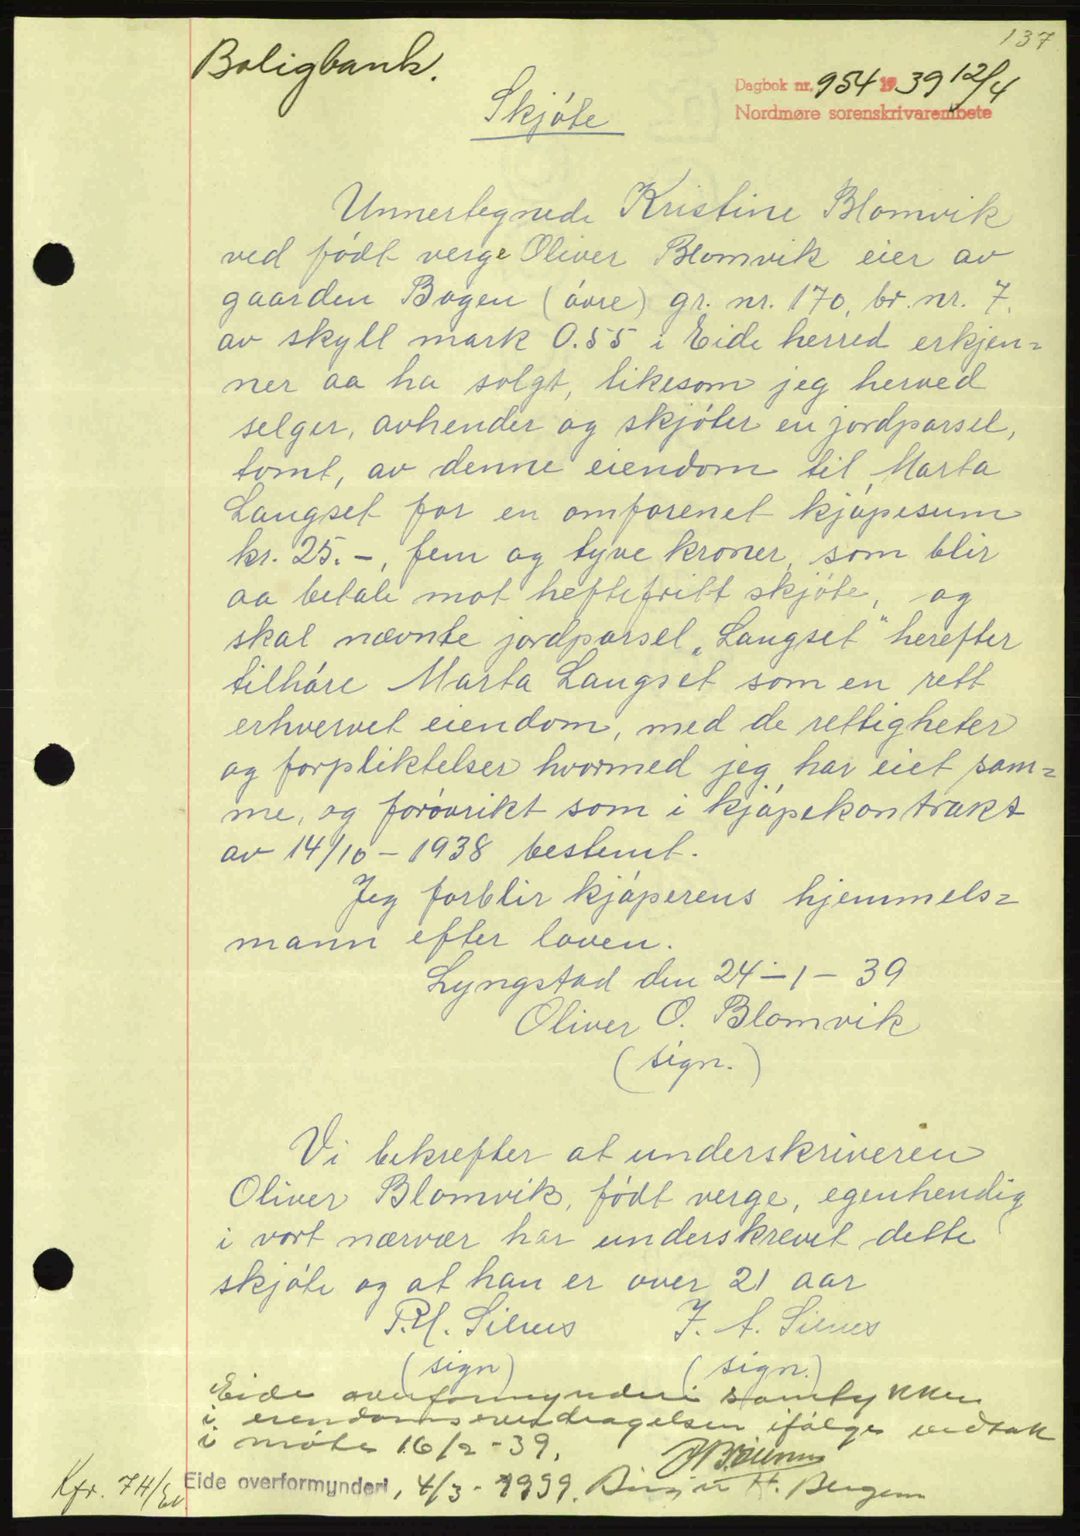 137
Boligbank.
Dagbok nr. 954 1939 12/4
Nordmøre sorenskrivarembete
Skjøte
Unnertegnede Kristine Blomvik
ved født verge Oliver Blomvik eier av
gaarden Bogen (øvre) gr. nr. 170, br. nr. 7.
av skyll mark 0.55 i Eide herred erkjen=
ner aa ha solgt, likesom jeg herved
selger, avhender og skjøter en jordparsel,
tomt, av denne eiendom til Marta
Langset for en omforenet kjøpesum
kr. 25.-, fem og tyve kroner, som blir
aa betale mot heftefritt skjøte, og
skal nævnte jordparsel „Langset" herefter
tilhøre Marta Langset som en rett
erhvervet eiendom, med de rettigheter
og forpliktelser hvormed jeg har eiet sam=
me, og forøvrikt som i kjøpekontrakt
av 14/10 - 1938 bestemt.
Jeg forblir kjøperens hjemmels=
mann efter loven.
Lyngstad den 24 - 1 - 39
Oliver O. Blomvik
(sign.)
Vi bekrefter at underskriveren
Oliver Blomvik, født verge, egenhendig
i vort nærvær har underskrevet dette
skjøte og at han er over 21 aar
P. M. Silnes J. A. Silnes
(sign) (sign.)
Eide overformynderi samtykker
i eiendomsovedragelsen ifølge vedtak
i møte 16/2 - 39.
Eide overformynderi, 4/3 - 1939. H. Bergem
Kfr. 74/